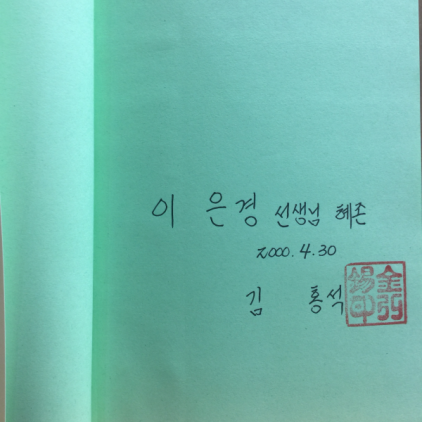 이 은경 선생님 혜존
2000. 4. 30
김 홍석